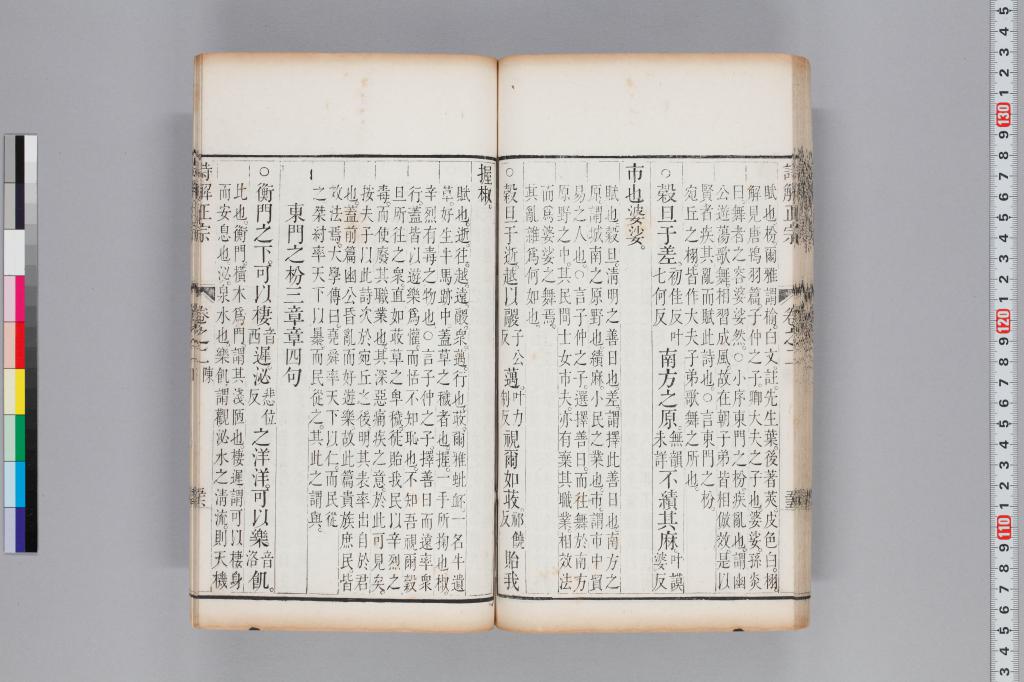 賦也枌爾雅謂榆白文註先生葉後著莢皮色白栩
解見唐鴇羽篇子仲之子卿大夫之子也婆娑孫炎
曰舞者之容婆娑然○小序東門之枌疾亂也謂幽
公遊蕩歌舞相習成風故在朝子弟皆相倣效是以
賢者疾其亂而賦此詩也○言東門之枌
宛丘之栩皆作大夫子弟歌舞之所也
○榖旦于差初佳反叶七何反南方之原無韻未詳不績其麻叶謨婆反
市也婆娑
賦也榖旦清明之善日也差謂擇此善日也南方之
原謂城南之原野也績麻小民之業也市謂市中貿
易之人也○言子仲之子選擇善日而往舞於南方
原野之中其民間士女市夫亦有棄其職業相效法
而爲婆娑之舞焉
其亂雖爲何如也
○榖旦于逝越以鬷子公反邁叶力制反視爾如荍祁饒反貽我
握椒
賦也逝往越遠鬷衆邁行也荍爾雅蚍衃一名牛遺
草好生牛馬跡中蓋草之穢者也握一手所掬也椒
辛烈有毒之物也○言子仲之子擇善日而遠率衆
行蓋皆以遊樂爲懽而恬不知恥也不知吾視爾榖
旦所往之衆直如荍草之卑穢徒貽我民以辛烈之
毒而使廢其職業也其深惡痛疾之意於此可見矣
按夫子以此詩次於宛丘之後明其表率出自於君
也蓋前篇幽公昏亂而好遊樂故此篇貴族庶民皆
故法焉大學傳曰堯舜率天下以仁而民從
之桀紂率天下以暴而民從之其此之謂與
東門之枌三章章四句
○衡門之下可以棲音西遲泌悲位反之洋洋可以樂音洛飢
比也衡門橫木爲門謂其淺陋也棲遲謂可以棲身
而安息也泌泉水也樂飢謂觀泌水之清流則天機
詩解正宗
卷之二
陳